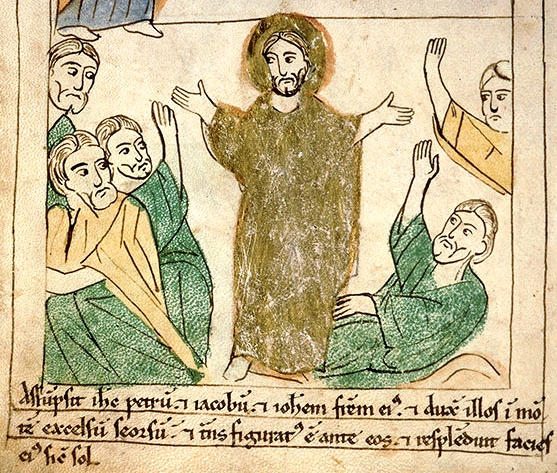 Assūpsit ihc petrū. ⁊ iacobū. ⁊ ioħem frēm ei᾽. ⁊ duxit illos ī mō
tē excelsū seorsū. ⁊ tn̄s figurat᾽ ē ante eos. ⁊ resplēduit facies
ei᾽ sic̄ sol.